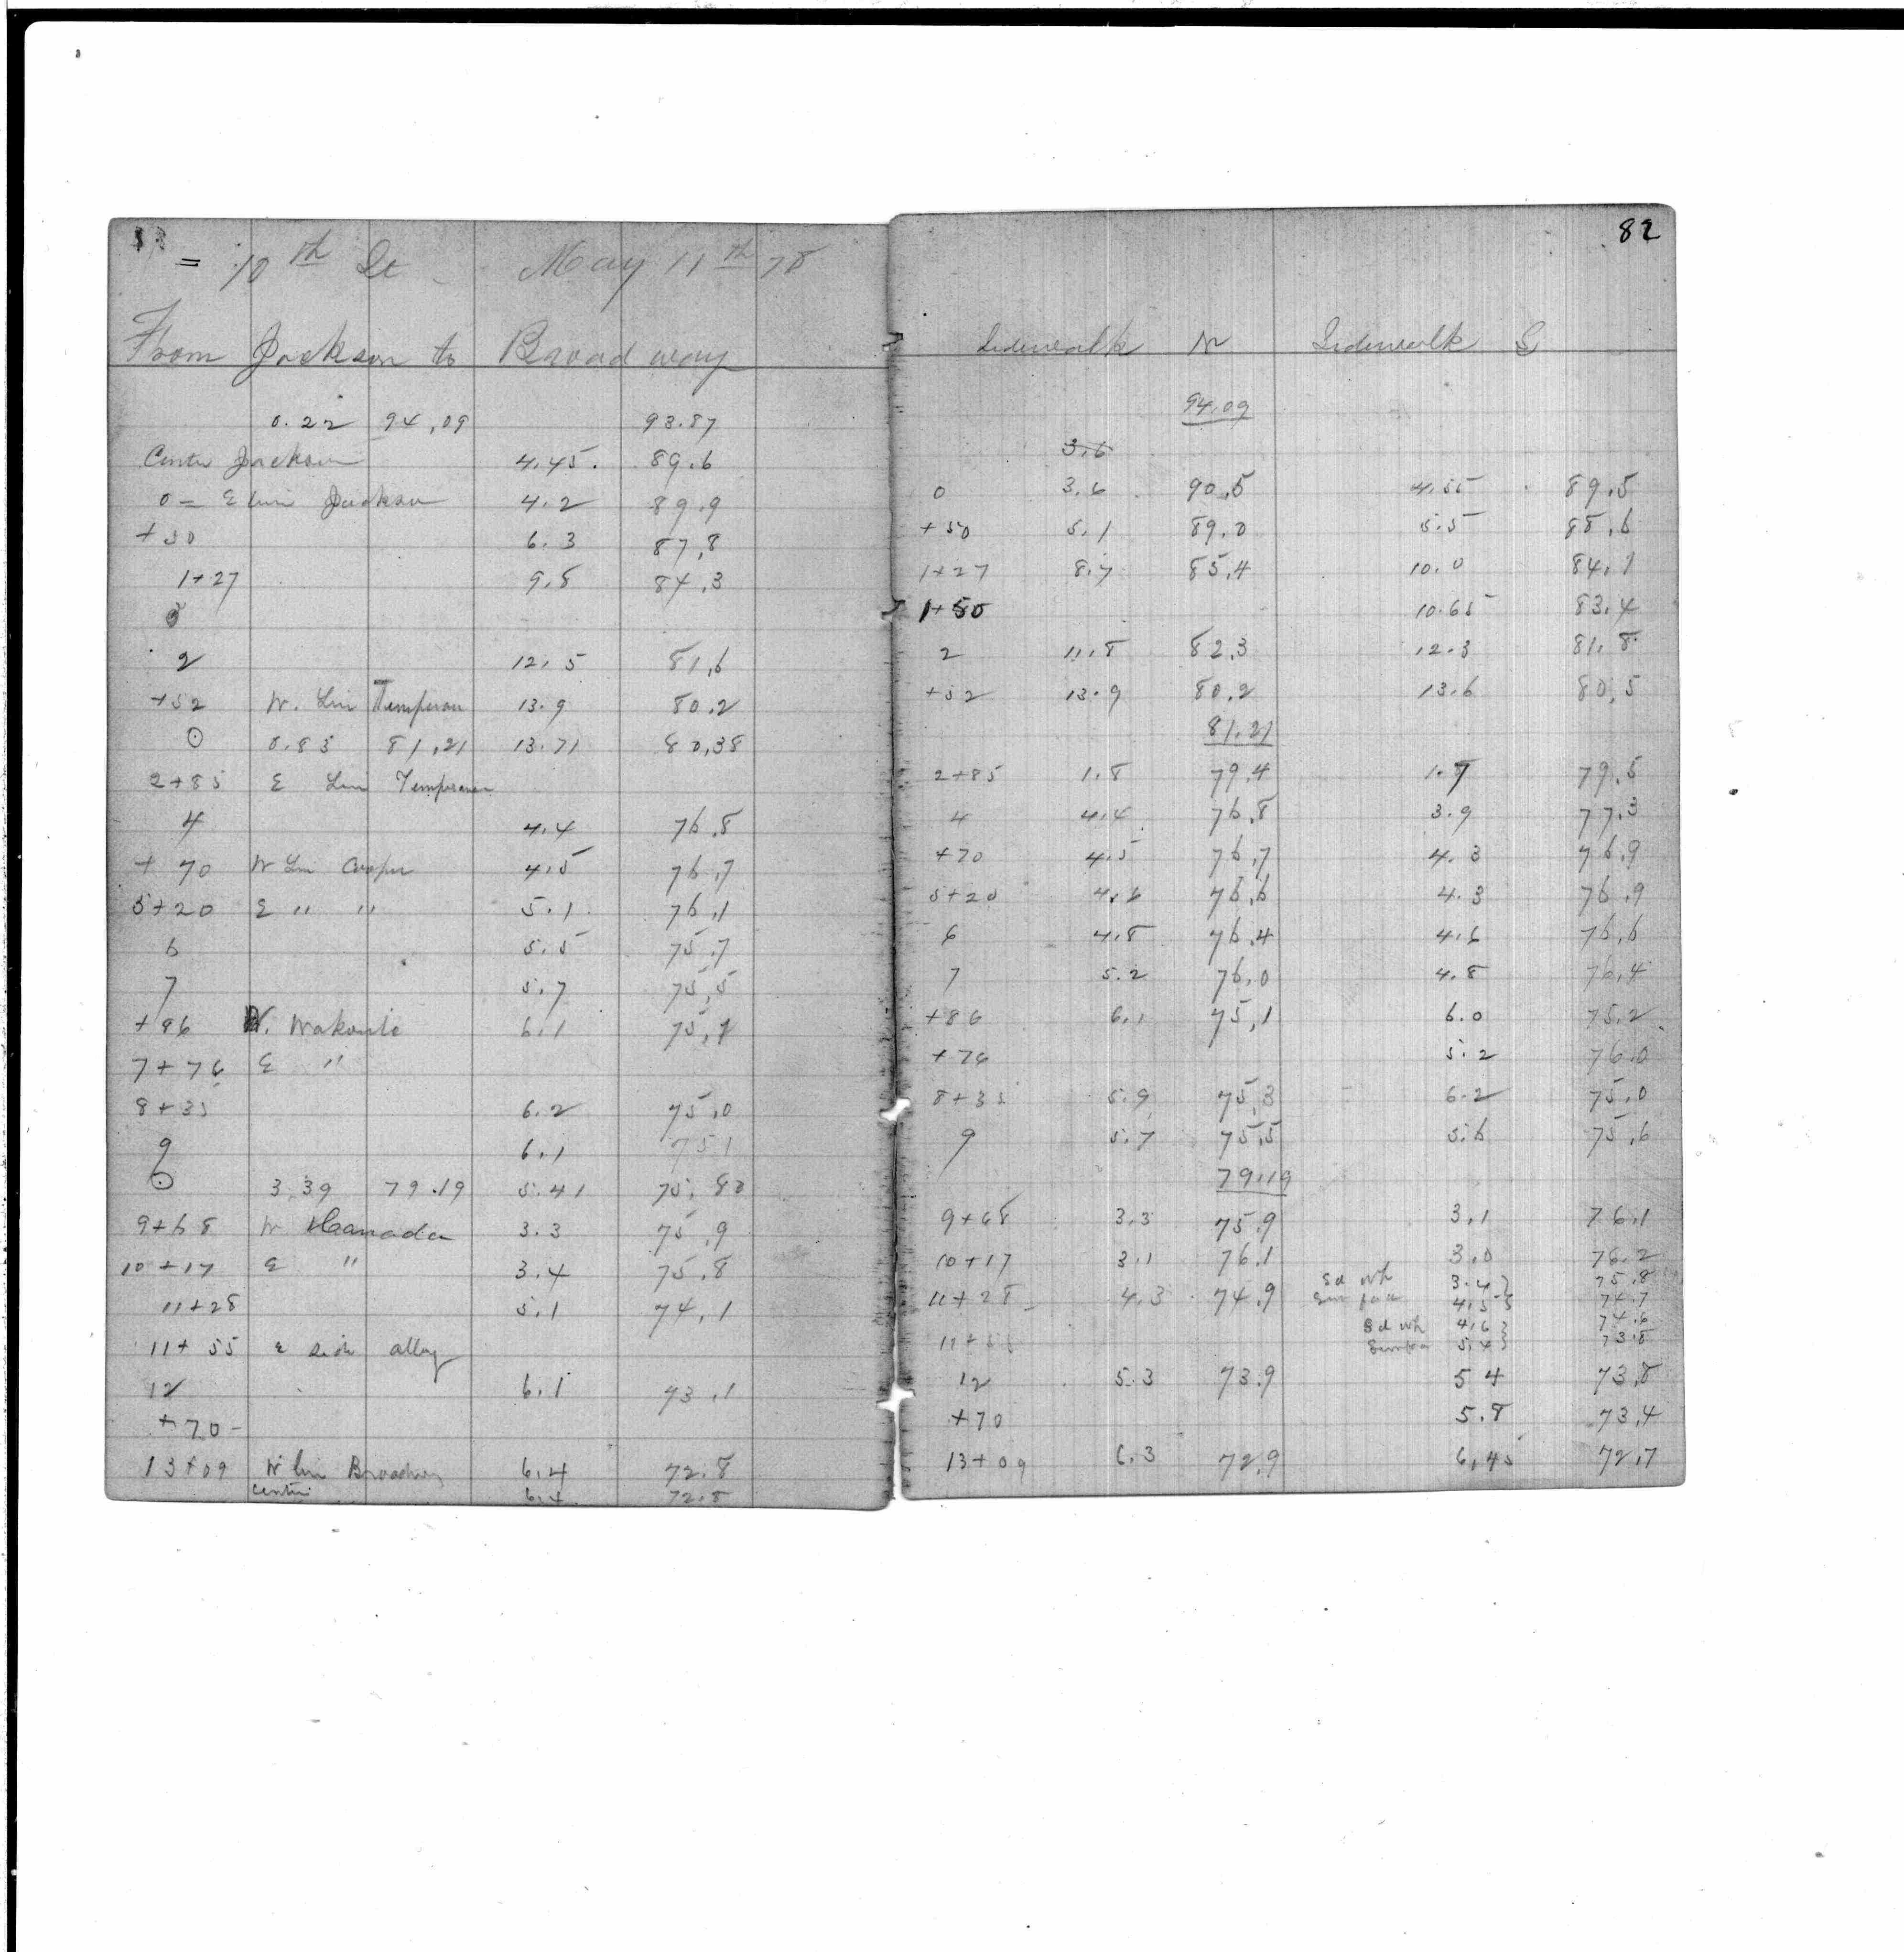 = 10th St May 11th 78
From Jackson to Broadway
0.22 94.09 93.87
Center Jackson 4.45. 89.6
0 = E line Jackson 4.2 89.9
+50 6.3 87.8
1+27 9.8 84.3
2 12.5 81.6
+52 W. Lin Temperan 13.9 80.2
⊙ 0.83 81.21 13.71 80.38
2+85 E Lin Temperan
4 4.4 76.8
+ 70 W Lin Cooper 4.5 76.7
5+20 E " " 5.1 76.1
6 5.5 75.7
7 5.7 75.5
+86 W. Wakouta 6.1 75.1
7+76 E "
8+35 6.2 75.0
9 6.1 75.1
⊙ 3.39 79.19 5.41 75.80
9+68 W Canada 3.3 75.9
10+17 E " 3.4 75.8
11+28 5.1 74.1
11+55 E side alley
12 6.1 73.1
+70-
13+09 W lin Broadway 6.4 72.8
center 6.4 72.8
82
Sidewalk N Sidewalk S
94.09
3.6
0 3.6 90.5 4.55 89.5
+50 5.1 89.0 5.5 88.6
1+27 8.7 85.4 10.0 84.1
1+50 10.65 83.4
2 11.8 82.3 12.3 81.8
+52 13.9 80.2 13.6 80.5
81.21
2+85 1.8 79.4 1.7 79.5
4 4.4 76.8 3.9 77.3
+70 4.5 76.7 4.3 76.9
5+20 4.6 76.6 4.3 76.9
6 4.8 76.4 4.6 76.6
7 5.2 76.0 4.8 76.4
+86 6.1 75.1 6.0 75.2
+76 5.2 76.0
8+35 5.9 75.3 6.2 75.0
9 5.7 75.5 5.6 75.6
79.19
9+68 3.3 75.9 3.1 76.1
10+17 3.1 76.1 3.0 76.2
Sd wk 3.4 75.8
11+28 4.3 74.9 Surface 4.5 74.7
Sd wk 4.6 74.6
11+55 Surface 5.4 73.8
12 5.3 73.9 5 4 73.8
+70 5.8 73.4
13+09 6.3 72.9 6.45 72.7